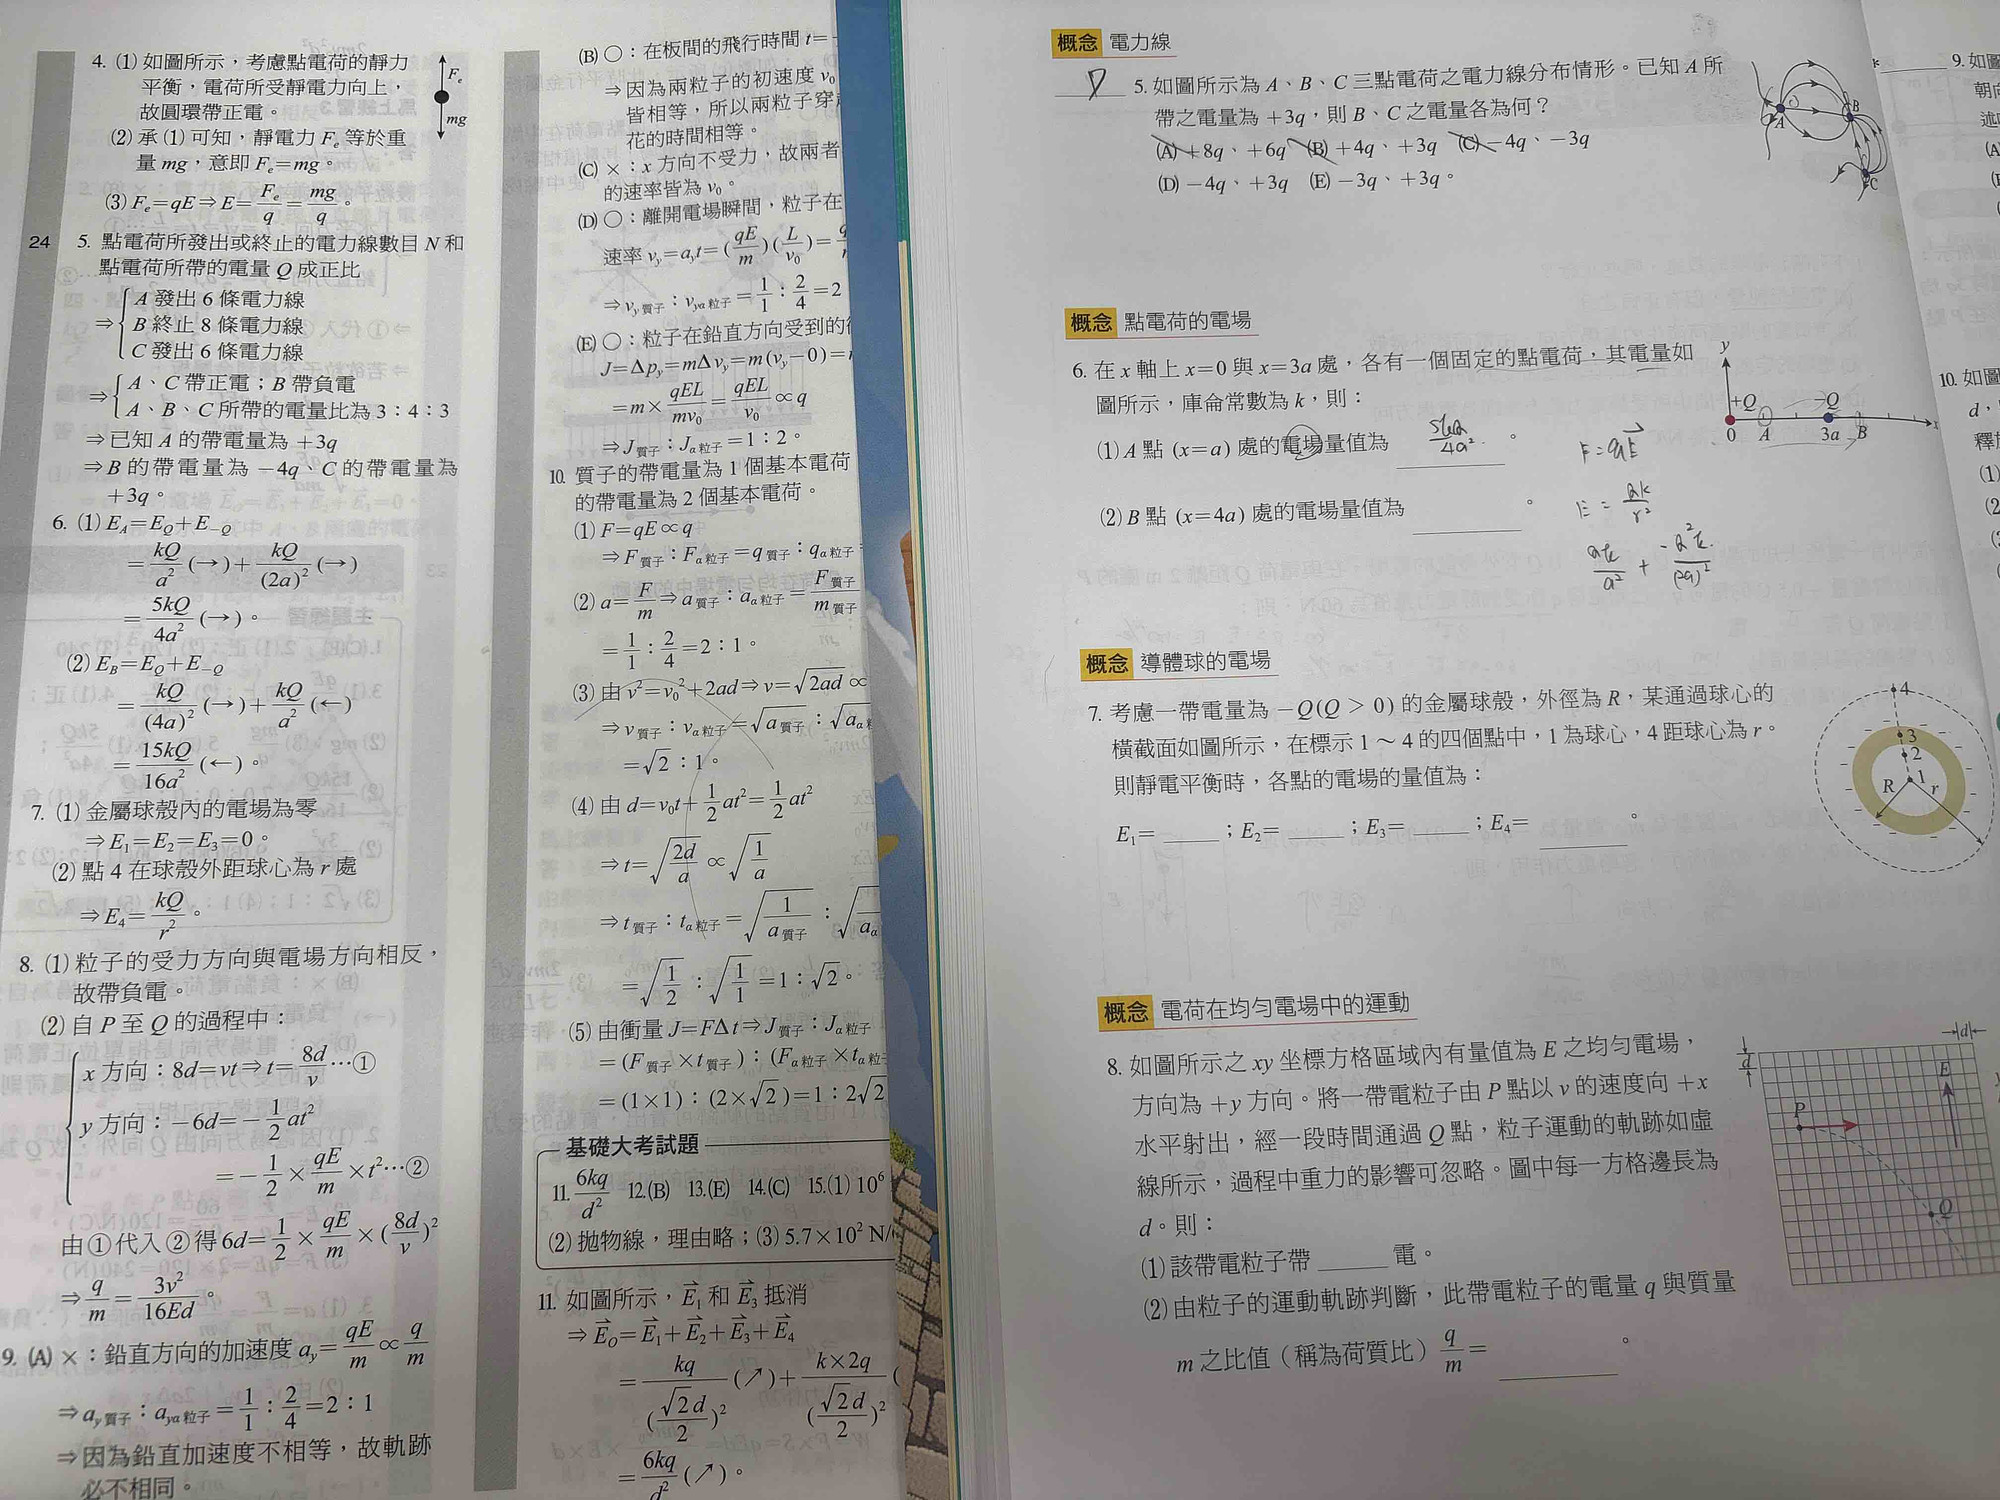 4. (1) 如圖所示,考慮點電荷的靜力
平衡,電荷所受靜電力向上,
故圓環帶正電。
(2) 承 (1) 可知,靜電力 Fe 等於重
量 mg,意即 Fe=mg。
(3) Fe=qE⇒E=Fe/q=mg/q。
Fe
mg
24
5. 點電荷所發出或終止的電力線數目 N 和
點電荷所帶的電量 Q 成正比
⇒{A 發出 6 條電力線
B 終止 8 條電力線
C 發出 6 條電力線
⇒{A、C 帶正電;B 帶負電
A、B、C 所帶的電量比為 3:4:3
⇒已知 A 的帶電量為 +3q
⇒B 的帶電量為 −4q、C 的帶電量為
+3q。
6. (1) EA=EQ+E−Q
=kQ/a²(→)+kQ/(2a)²(→)
=5kQ/4a²(→)。
(2) EB=EQ+E−Q
=kQ/(4a)²(→)+kQ/a²(←)
=15kQ/16a²(←)。
7. (1) 金屬球殼內的電場為零
⇒E1=E2=E3=0。
(2) 點 4 在球殼外距球心為 r 處
⇒E4=kQ/r²。
8. (1) 粒子的受力方向與電場方向相反,
故帶負電。
(2) 自 P 至 Q 的過程中:
x 方向:8d=vt⇒t=8d/v…①
y 方向:−6d=−1/2at²
=−1/2×qE/m×t²…②
由①代入②得 6d=1/2×qE/m×(8d/v)²
⇒q/m=3v²/16Ed。
9. (A) ×:鉛直方向的加速度 ay=qE/m∝q/m
⇒ay質子:ayα粒子=1/1:2/4=2:1
⇒因為鉛直加速度不相等,故軌跡
必不相同。
(B) ○:在板間的飛行時間 t=
⇒因為兩粒子的初速度 v0
皆相等,所以兩粒子穿
花的時間相等。
(C) ×:x 方向不受力,故兩者
的速率皆為 v0。
(D) ○:離開電場瞬間,粒子在
速率 vy=ayt=(qE/m)(L/v0)=
⇒vy質子:vyα粒子=1/1:2/4=2
(E) ○:粒子在鉛直方向受到的
J=Δpy=mΔvy=m(vy−0)=
=m×qEL/mv0=qEL/v0∝q
⇒J質子:Jα粒子=1:2。
10. 質子的帶電量為 1 個基本電荷
的帶電量為 2 個基本電荷。
(1) F=qE∝q
⇒F質子:Fα粒子=q質子:qα粒子=
(2) a=F/m⇒a質子:aα粒子=F質子/m質子
=1/1:2/4=2:1。
(3) 由 v²=v0²+2ad⇒v=√2ad∝
⇒v質子:vα粒子=√a質子:√aα
=√2:1。
(4) 由 d=v0t+1/2at²=1/2at²
⇒t=√(2d/a)∝√(1/a)
⇒t質子:tα粒子=√(1/a質子):√
=√(1/2):√(1/1)=1:√2。
(5) 由衝量 J=FΔt⇒J質子:Jα粒子
=(F質子×t質子):(Fα粒子×tα粒
=(1×1):(2×√2)=1:2√2
基礎大考試題
11. 6kq/d² 12.(B) 13.(E) 14.(C) 15.(1) 10⁶
(2) 拋物線,理由略;(3) 5.7×10² N/
11. 如圖所示,E1 和 E3 抵消
⇒EO=E1+E2+E3+E4
=kq/(√2d/2)²(↗)+k×2q/(√2d/2)²(
=6kq/d²(↗)。
概念 電力線
D
5. 如圖所示為 A、B、C 三點電荷之電力線分布情形。已知 A 所
帶之電量為 +3q,則 B、C 之電量各為何?
(A) +8q、+6q (B) +4q、+3q (C) −4q、−3q
(D) −4q、+3q (E) −3q、+3q。
A
B
C
概念 點電荷的電場
6. 在 x 軸上 x=0 與 x=3a 處,各有一個固定的點電荷,其電量如
圖所示,庫侖常數為 k,則:
(1) A 點 (x=a) 處的電場量值為 5kQ/4a²。
(2) B 點 (x=4a) 處的電場量值為 。
y
+Q −Q
0 A 3a B x
F=qE
E=Qk/r²
概念 導體球的電場
7. 考慮一帶電量為 −Q(Q > 0) 的金屬球殼,外徑為 R,某通過球心的
橫截面如圖所示,在標示 1 ~ 4 的四個點中,1 為球心,4 距球心為 r。
則靜電平衡時,各點的電場的量值為:
E1= ;E2= ;E3= ;E4= 。
4
3
2
1
R r
概念 電荷在均勻電場中的運動
8. 如圖所示之 xy 坐標方格區域內有量值為 E 之均勻電場,
方向為 +y 方向。將一帶電粒子由 P 點以 v 的速度向 +x
水平射出,經一段時間通過 Q 點,粒子運動的軌跡如虛
線所示,過程中重力的影響可忽略。圖中每一方格邊長為
d。則:
(1) 該帶電粒子帶 電。
(2) 由粒子的運動軌跡判斷,此帶電粒子的電量 q 與質量
m 之比值(稱為荷質比)q/m= 。
d
d
E
P
Q
9. 如圖
朝向
述
(A)
10. 如圖
d,
釋放
(1)
(2)